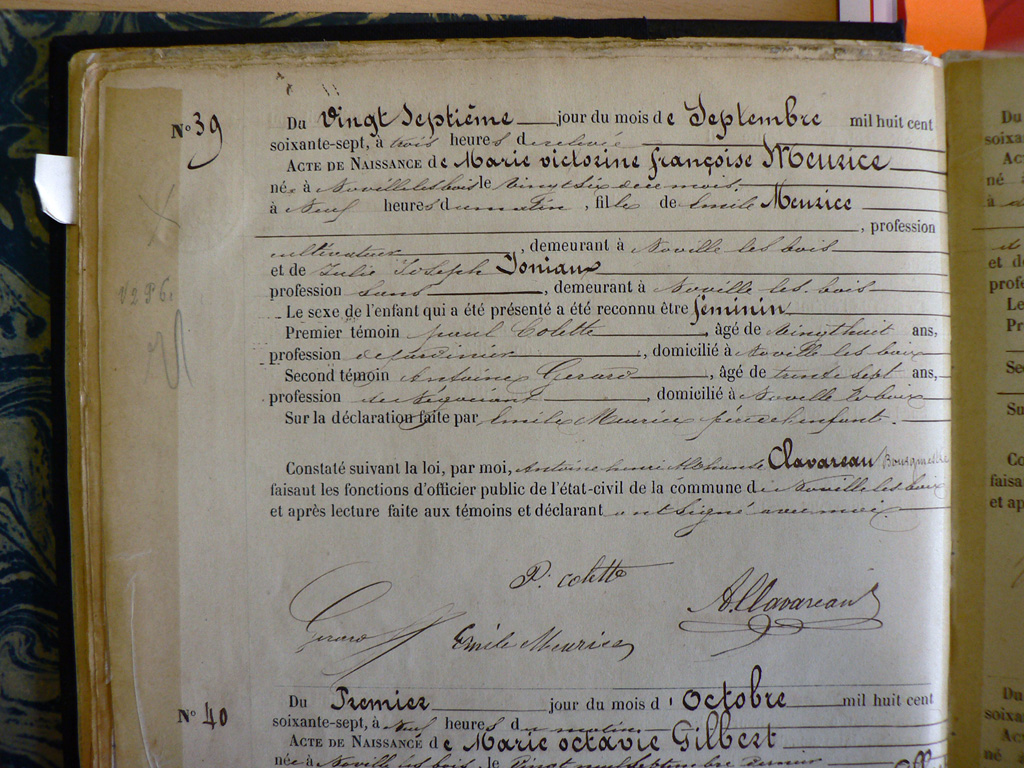 N° 39
Du Vingt Septième jour du mois de Septembre mil huit cent
soixante-sept, à trois heures de relevée
ACTE DE NAISSANCE de Marie victorine françoise Meurice
née à Noville les bois le Vingt Six de ce mois.
à Neuf heures du matin, fille de Emile Meurice
, profession
cultivateur, demeurant à Noville les bois
et de Julie Joseph Joniaux
profession Sans, demeurant à Noville les bois
Le sexe de l'enfant qui a été présenté a été reconnu être féminin
Premier témoin paul Colette, âgé de vingt huit ans,
profession de jardinier, domicilié à Noville les boix
Second témoin Antoine Gerard, âgé de trente sept ans,
profession de Négociant, domicilié à Noville les boix
Sur la déclaration faite par Emile Meurice père de l'enfant.
Constaté suivant la loi, par moi, Antoine henri Clavareau Bourgmestre
faisant les fonctions d'officier public de l'état-civil de la commune de Noville les boix
et après lecture faite aux témoins et déclarant ont signé avec moi.
P. Colette
A. Clavareau
Gerard
Emile Meurice
N° 40
Du Premier jour du mois d'Octobre mil huit cent
soixante-sept, à Neuf heures du matin
ACTE DE NAISSANCE de Marie octavie Gilbert
née à Noville les bois, le Vingt neuf septembre dernier
V2P6
Du
soixa
Ac
né
à
et d
profe
Le
Pr
prof
Sec
prof
Su
Co
faisa
et ap
Du
soixa
Ac
né